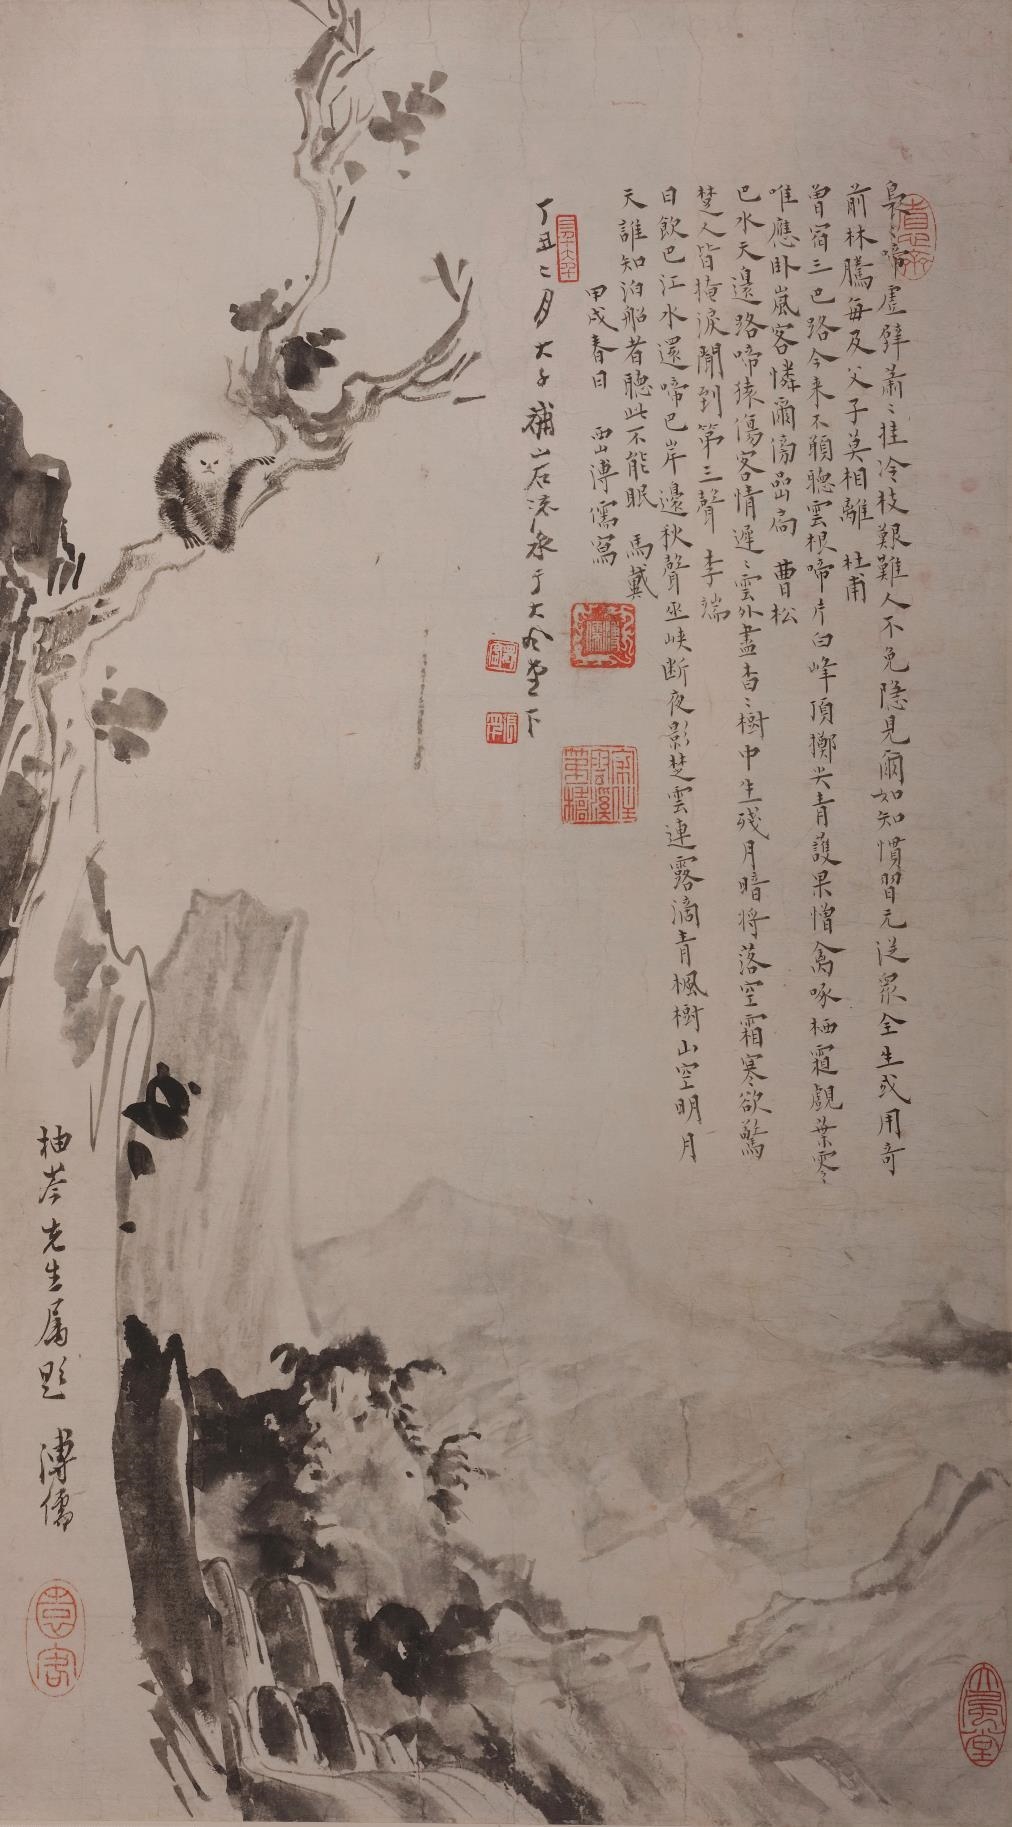 裊〻啼虛壁蕭〻挂冷枝艱難人不免隱見爾如知慣習元從眾全生或用奇
前林騰每及父子莫相離 杜甫
曾宿三巴路今来不願聽雲根啼片白峰頂擲尖青護果憎禽啄栖霜覷葉零〻
唯應卧嵐客憐爾傍嵒扃 曹松
巴水天邊路啼猿傷客情遲〻雲外盡杳〻樹中生殘月暗將落空霜寒欲驚
楚人皆掩淚聞到第三聲 李端
日飲巴江水還啼巴岸邊秋聲巫峽断夜影楚雲連露滴青楓樹山空明月
天誰知泊船者聽此不能眠 馬戴
甲戌春日 西山溥儒寫
丁丑二月大千補山石流水于大風堂下
柚岑先生屬題 溥儒
大風堂